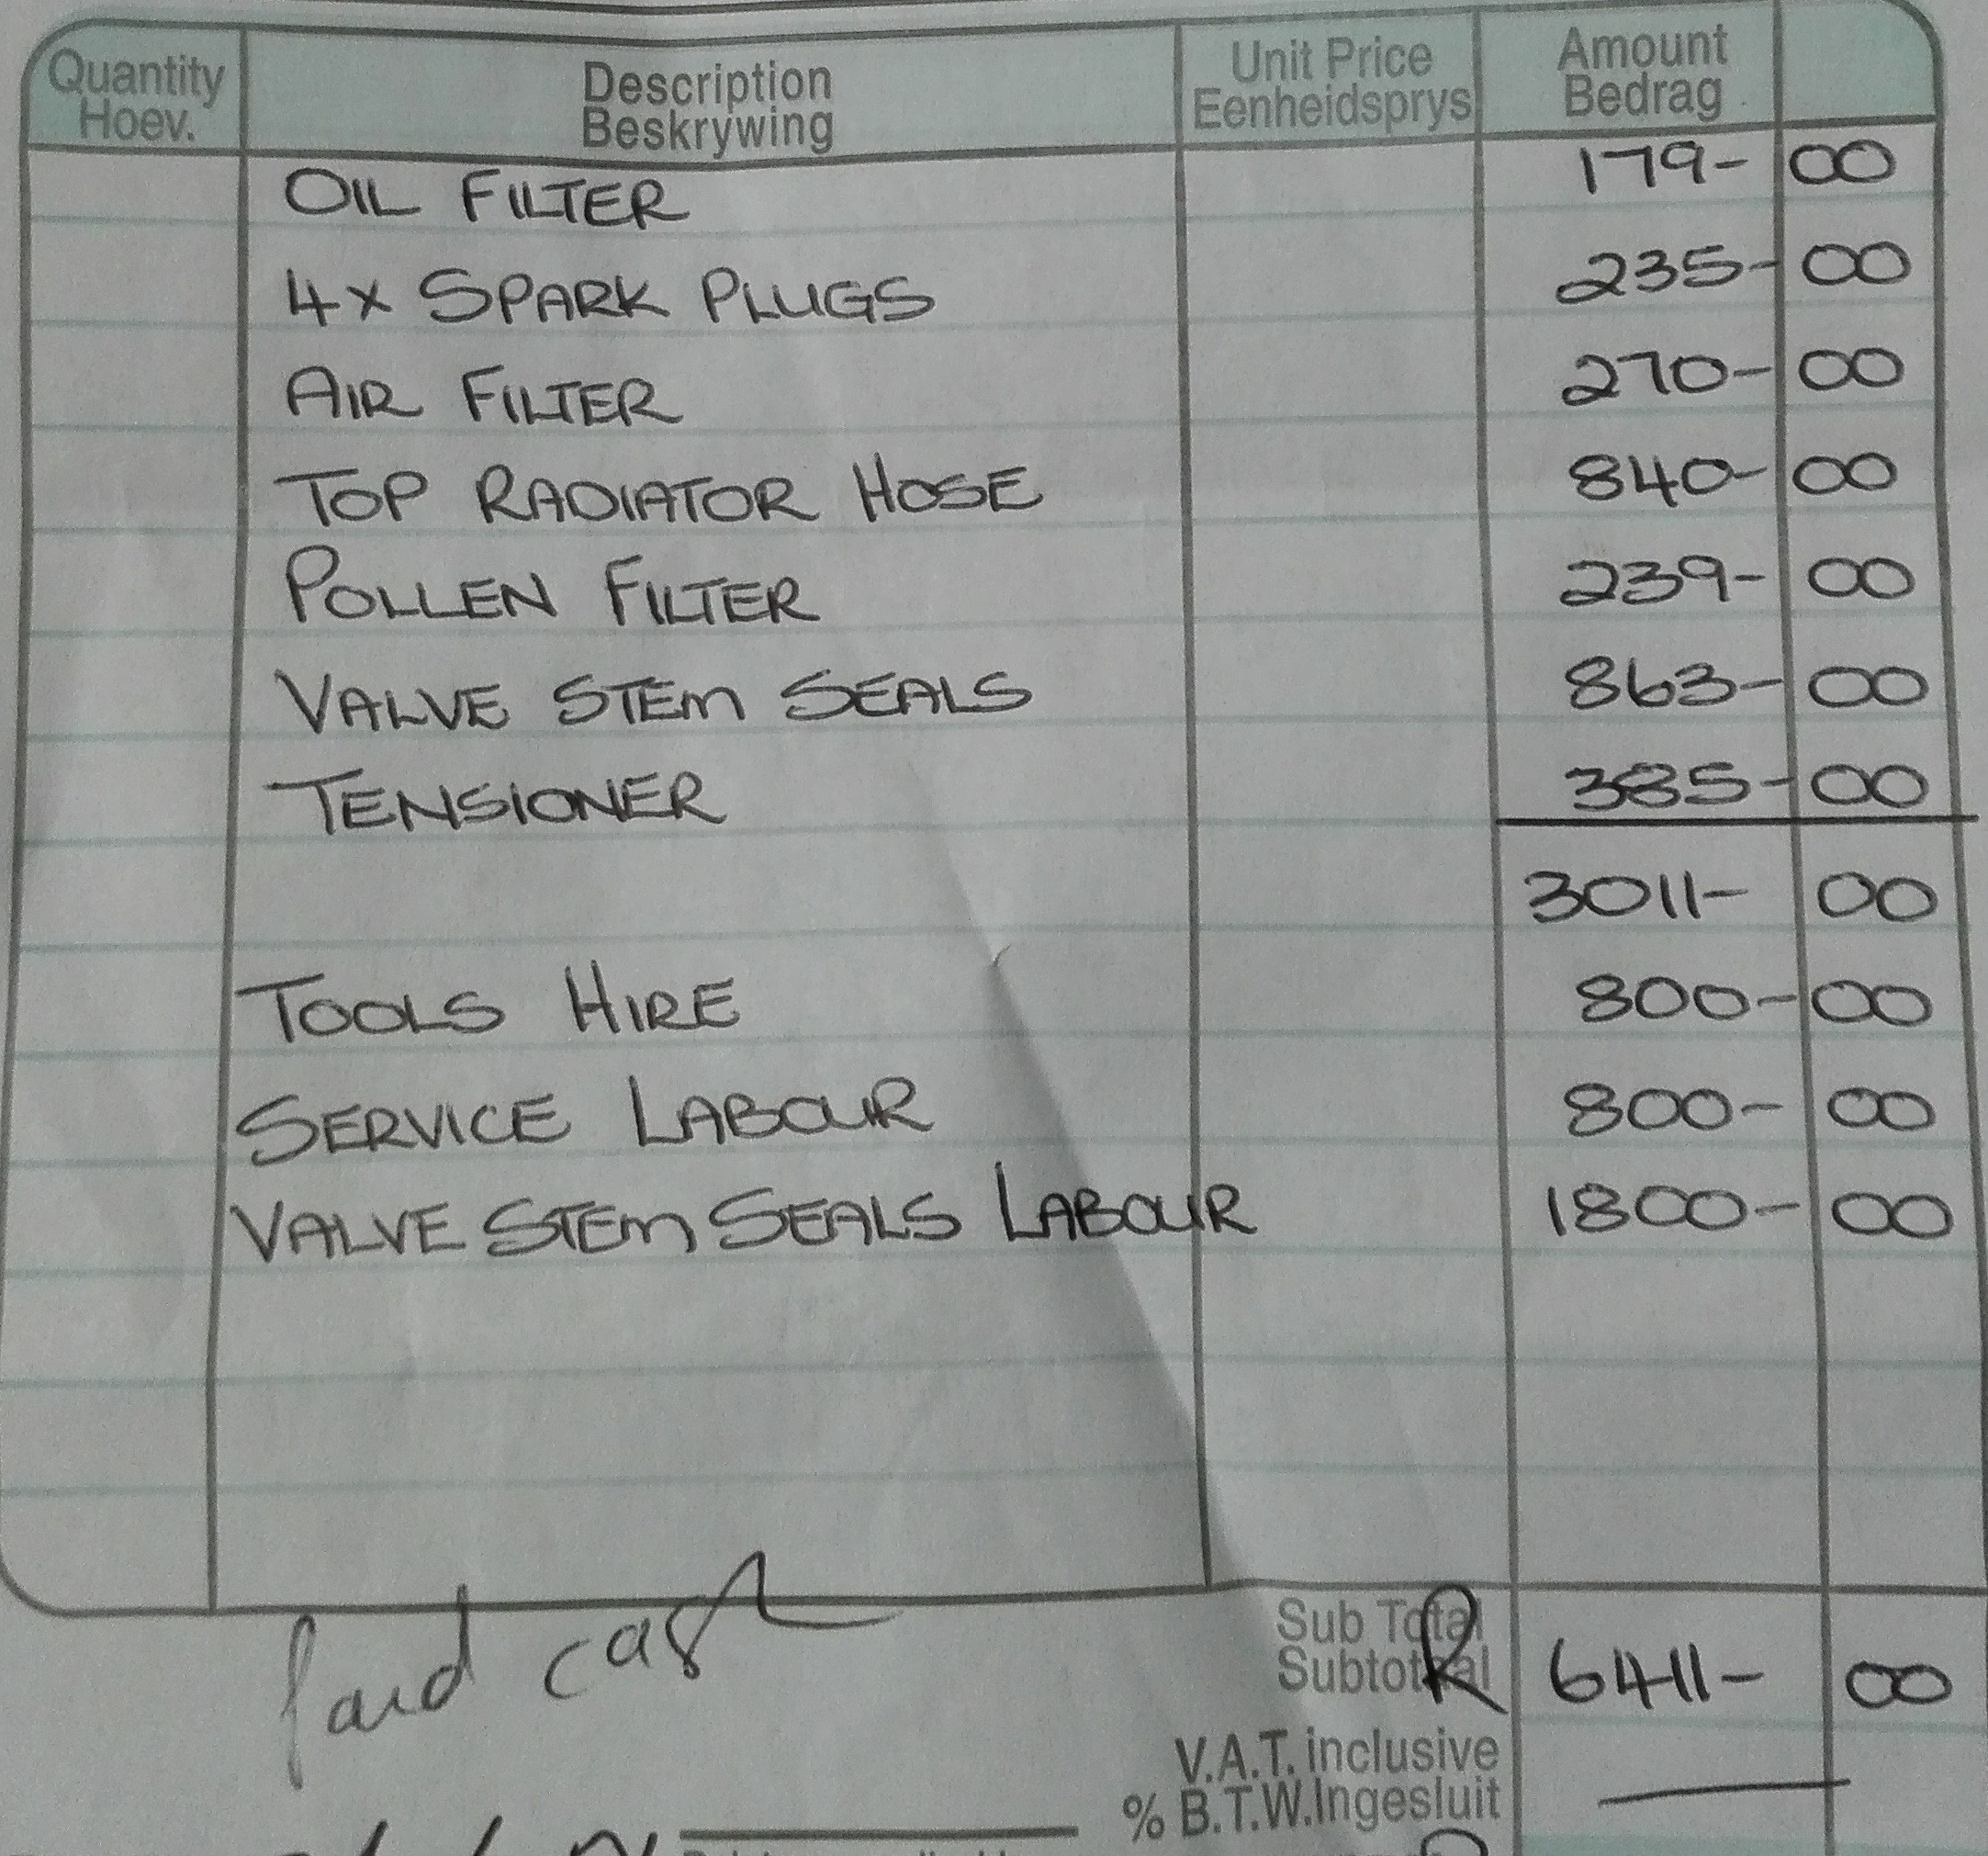 Quantity Description Unit Price Amount
Hoev. Beskrywing Eenheidsprys Bedrag
OIL FILTER 179- 00
4x SPARK PLUGS 235- 00
AIR FILTER 270- 00
TOP RADIATOR HOSE 840- 00
POLLEN FILTER 239- 00
VALVE STEM SEALS 863- 00
TENSIONER 385- 00
3011- 00
TOOLS HIRE 800- 00
SERVICE LABOUR 800- 00
VALVE STEM SEALS LABOUR 1800- 00
Paid cash
Sub Total
Subtotaal R 6411- 00
V.A.T. inclusive
% B.T.W.Ingesluit —